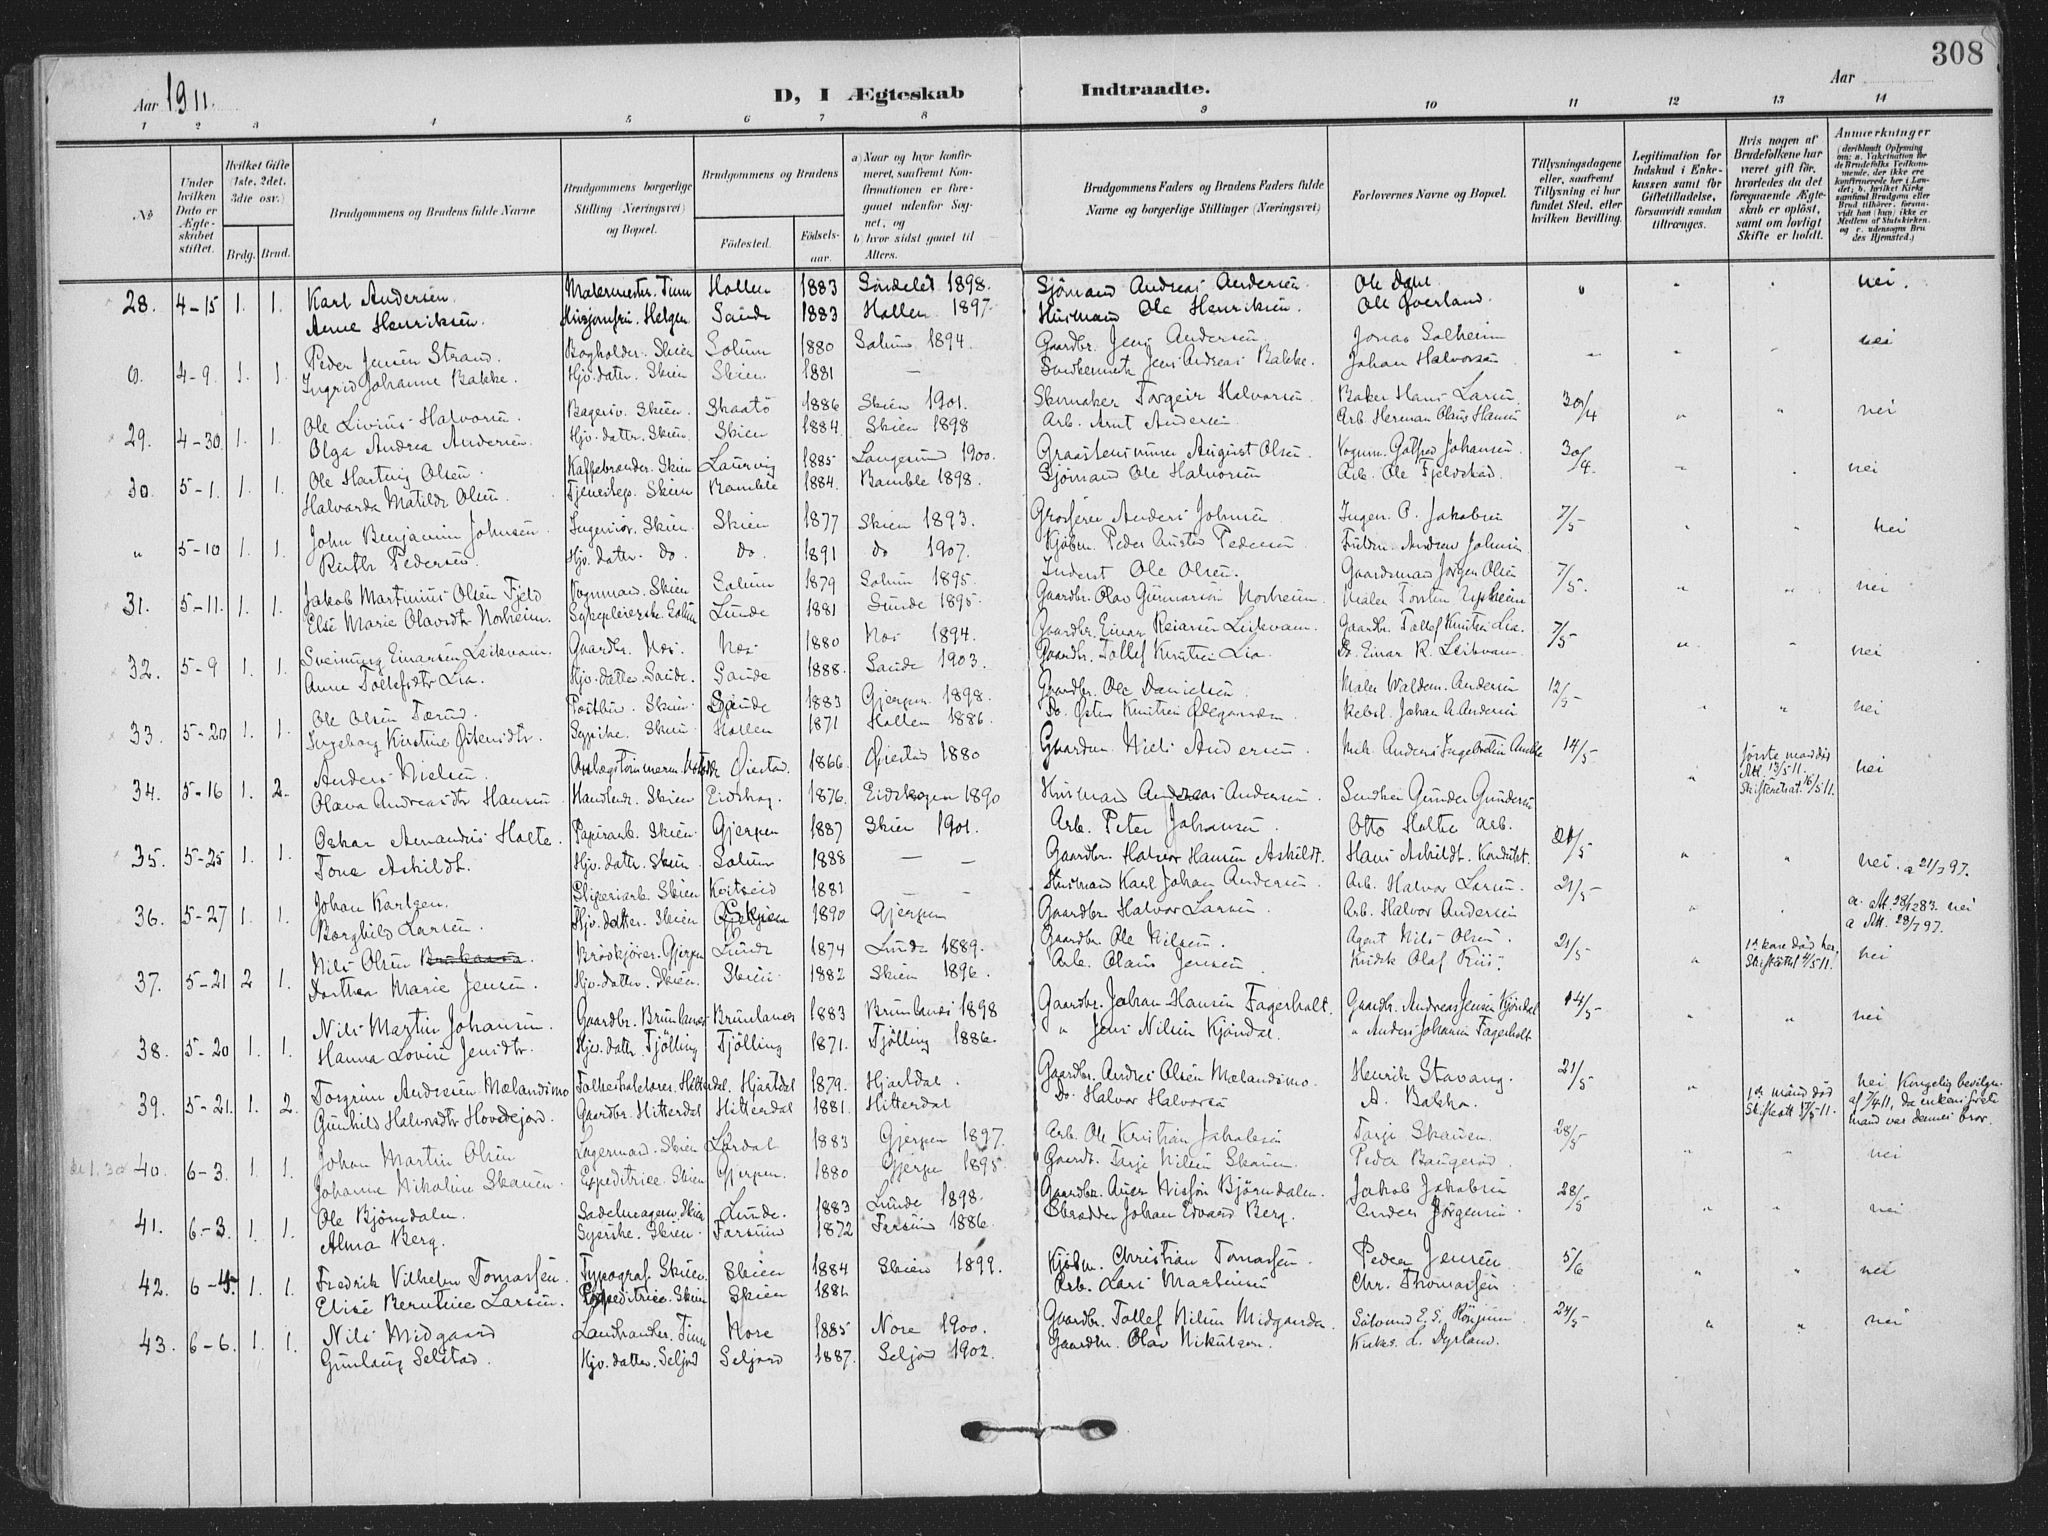 308
Aar 1911.
D, I Ægteskab Indtraadte.
Aar
1 2 3 4 5 6 7 8 9 10 11 12 13 14
No
Under hvilken Dato er Ægteskabet stiftet.
Hvilket Gifte (1ste, 2det, 3die osv.)
Brdg. Brud.
Brudgommens og Brudens fulde Navne
Brudgommens borgerlige Stilling (Næringsvei) og Bopæl.
Brudgommens og Brudens
Fødested. Fødselsaar.
a) Naar og hvor konfirmeret, saafremt Konfirmationen er foregaaet udenfor Sognet, og
b) hvor sidst gaaet til Alters.
Brudgommens Faders og Brudens Faders fulde Navne og borgerlige Stillinger (Næringsvei)
Forlovernes Navne og Bopæl.
Tillysningsdagene eller, saafremt Tillysning ei har fundet Sted, efter hvilken Bevilling.
Legitimation for Indskud i Enkekassen samt for Giftetilladelse, forsaavidt saadan tiltrænges.
Hvis nogen af Brudefolkene har været gift før, hvorledes da det foregaaende Ægteskab er opløst, samt om lovligt Skifte er holdt.
Anmerkninger
(deriblandt Oplysning om: a. Vakcination for de Brudefolks Vedkommende, der ikke ere konfirmerede her i Landet; b. hvilket Kirkesamfund Brudgom eller Brud tilhører, forsaavidt han (hun) ikke er Medlem af Statskirken, og c. udensogns Brudes Hjemsted.)
28. 4-15 1. 1. Karl Andersen. Malermester. Tinn Hollen 1883 Søndeled 1898. Sjømand Andreas Andersen. Ole Dahl " " " nei.
Anne Henriksen. Husjomfru. Helgen Saude 1883 Hollen 1897. Husmand Ole Henriksen. Ole Øverland.
0. 4-9. 1. 1. Peder Jensen Strand. Bogholder. Skien Solum 1880 Solum 1894. Gaardbr. Jens Andersen Jonas Solheim " " " nei
Ingrid Johanne Bakke. Hjv. datter. Skien Skien 1881 — Jens Andreas Bakke. Johan Halvorsen
29. 4-30 1. 1. Ole Livius Halvorsen. Bagersv. Skien. Skaatö 1886 Skien 1901. Skomaker Torgeir Halvorsen Baker Hans Larsen 30/4 " " nei
Olga Andrea Andersen. Hjv. datter. Skien. Skien 1884. Skien 1898 Arb. Arnt Andersen Arb. Herman Olaus Hansen
30. 5-1. 1. 1. Ole Hartvig Olsen. Kaffebrænder. Skien Laurvig 1885 Langesund 1900. August Olsen. Vognm. Gotfred Johansen. 30/4. " " nei
Halvarda Matilde Olsen. Skien Bamble 1884. Bamble 1898. Sjømand Ole Halvorsen Arb. Ole Fjeldstad.
" 5-10 1. 1. John Benjamin Johnsen. Ingeniør. Skien Skien 1877 Skien 1893. Grosserer Anders Johnsen Ingen. P. Jakobsen 7/5 " " nei
Ruth Pedersen. Hjv. datter. do. do. 1891 do 1907. Kjøbm. Peder Pedersen Andrew Johnsen
31. 5-11. 1. 1. Jakob Martinius Olsen Fjeld Vognmand. Skien Solum 1879 Solum 1895. Inderst Ole Olsen. Gaardmand Jørgen Olsen 7/5. " " nei
Else Marie Olavsdtr Norheim. Sykepleierske Solum Lunde 1881 Lunde 1895. Gaardbr. Olav Gunnarson Norheim. Maler Torsten
32. 5-9 1. 1. Sveinung Einarsen Leikvam. Gaardbr. Næs. Næs 1880 Næs 1894. Gaardbr. Einar Reiarsen Leikvam. Gaardbr. Tollef Knutsen Lia. 7/5 " " nei
Anne Tollefsdtr Lia. Hjv. datter Saude. Saude 1888. Saude 1903. Gaardbr. Tollef Knutsen Lia. Do. Einar R. Leikvam.
33. 5-20 1. 1. Ole Olsen Postbud. Skien. Saude 1883 Gjerpen 1898. Gaardbr. Ole Danielsen. Maler Waldem. Andersen 12/5 " " nei
Ingeborg Kirstine Østensdtr. Sypike. Skien Hollen 1871 Hollen 1886. Do. Østen Knutsen Ødegaarden Johan A. Andersen
34. 5-16 1. 2. Anders Nielsen. Øiestad. 1866. Øiestad 1880 Gaardm. Niels Andersen Mek. Anders Ingebretsen 14/5 " Første mand død Att. 13/5 11. nei
Olava Andreasdtr Hansen Handlende. Skien Eidskog. 1876. Eidskogen 1890 Husmand Andreas Andersen. Gunder Gundersen Skifteretsat. 16/5 11.
35. 5-25 1. 1. Oskar Amandus Holte. Papirarb. Skien Gjerpen 1887 Skien 1901. Arb. Peter Johansen. Otto Holte Arb. 21/5 " "
Tone Askildt. Hjv. datter. Skien. Solum 1888 — — Gaardbr. Halvor Hansen Askildt. Hans Askildt. Kondukt. nei. a 21/7 97.
36. 5-27 1. 1. Johan Karlsen. Skien 1881 — — Husmand Karl Johan Andersen Arb. Halvor Larsen. 21/5 " " a. Att. 28/12 83. nei
Borghild Larsen. Hjv. datter. Skien 1890 Gjerpen Gaardbr. Halvor Larsen. Arb. Halvor Andersen a Att. 28/7 97.
37. 5-21 2 1. Nils Olsen. Brødkjører. Gjerpen Lunde 1874 Lunde 1889. Gaardbr. Ole Nilsen. Agent Nils Olsen. 21/5 " 1st kone død her. nei
Dorthea Marie Jensen. Hjv. datter. Skien. Skien 1882 Skien 1896. Arb. Olaus Jensen Olaf Skifteattst 4/5 11.
38. 5-20 1. 1. Nils Martin Johansen. Gaardbr. Brunlanes Brunlanes 1883 Brunlanes 1898 Gaardbr. Johan Hansen Fagerholt. Gaardbr. Andreas Jensen Kjøndal 14/5 " " nei
Hanna Lovise Jensdtr. Hjv. datter Tjølling Tjölling 1871. Tjölling 1886. " Jens Nilsen Kjøndal. " Anders Johansen Fagerholt
39. 5-21. 1. 2. Torgrim Andresen Mælandsmo Hitterdal. Hjartdal 1879. Hjartdal. Gaardbr. Andres Olsen Mælandsmo. Henrik Stavang. 21/5 " 1st mand død nei. Kongelig bevilgn.
Gunhild Halvorsdtr Hovdejord. Gaardbr. Hitterdal Hitterdal 1881. Hitterdal Do. Halvor Halvorsen A. Bakka. Skifteatt 17/5 11. af 7/4 11, da enkens første mand var dennes bror
40. 6-3. 1. 1. Johan Martin Olsen Lagermand. Skien Lardal 1883 Gjerpen 1897. Arb. Ole Kristian Jakobsen Tarje Skauen. 28/5 " " nei
Johanne Nikoline Skauen. Expeditrice. Skien Gjerpen. 1880 Gjerpen 1895 Gaardb. Tarje Nilsen Skauen. Peder
41. 6-3. 1. 1. Ole Bjørndalen. Sadelmagersv. Skien Lunde. 1883 Lunde 1898. Gaardbr. Auen Nissen Bjørndalen. Jakob Jakobsen 28/5 " " nei
Alma Berg. Sypike. Skien. Farsund 1872 Farsund 1886. Johan Edvard Berg. Anders Jørgensen
42. 6-5. 1. 1. Fredrik Vilhelm Tomassen. Typograf Skien. Skien 1884 Skien 1899. Kjøbm. Christian Tomassen. Peder Jensen 5/6 " " nei
Elise Berntine Larsen. Expeditrice. Skien Skien 1881 Arb. Lars Martinsen Chr. Thomassen
43. 6-6. 1. 1. Nils Midgaard Landhandler. Tinn Nore 1885 Nore 1900. Gaardbr. Tollef Nilsen Midgaarden 24/5 " " nei
Gunlaug Selstad. Hjv. datter. Seljord Seljord 1887. Seljord 1902. Gaardbr. Olav Nikulsen. L. Dyrland.